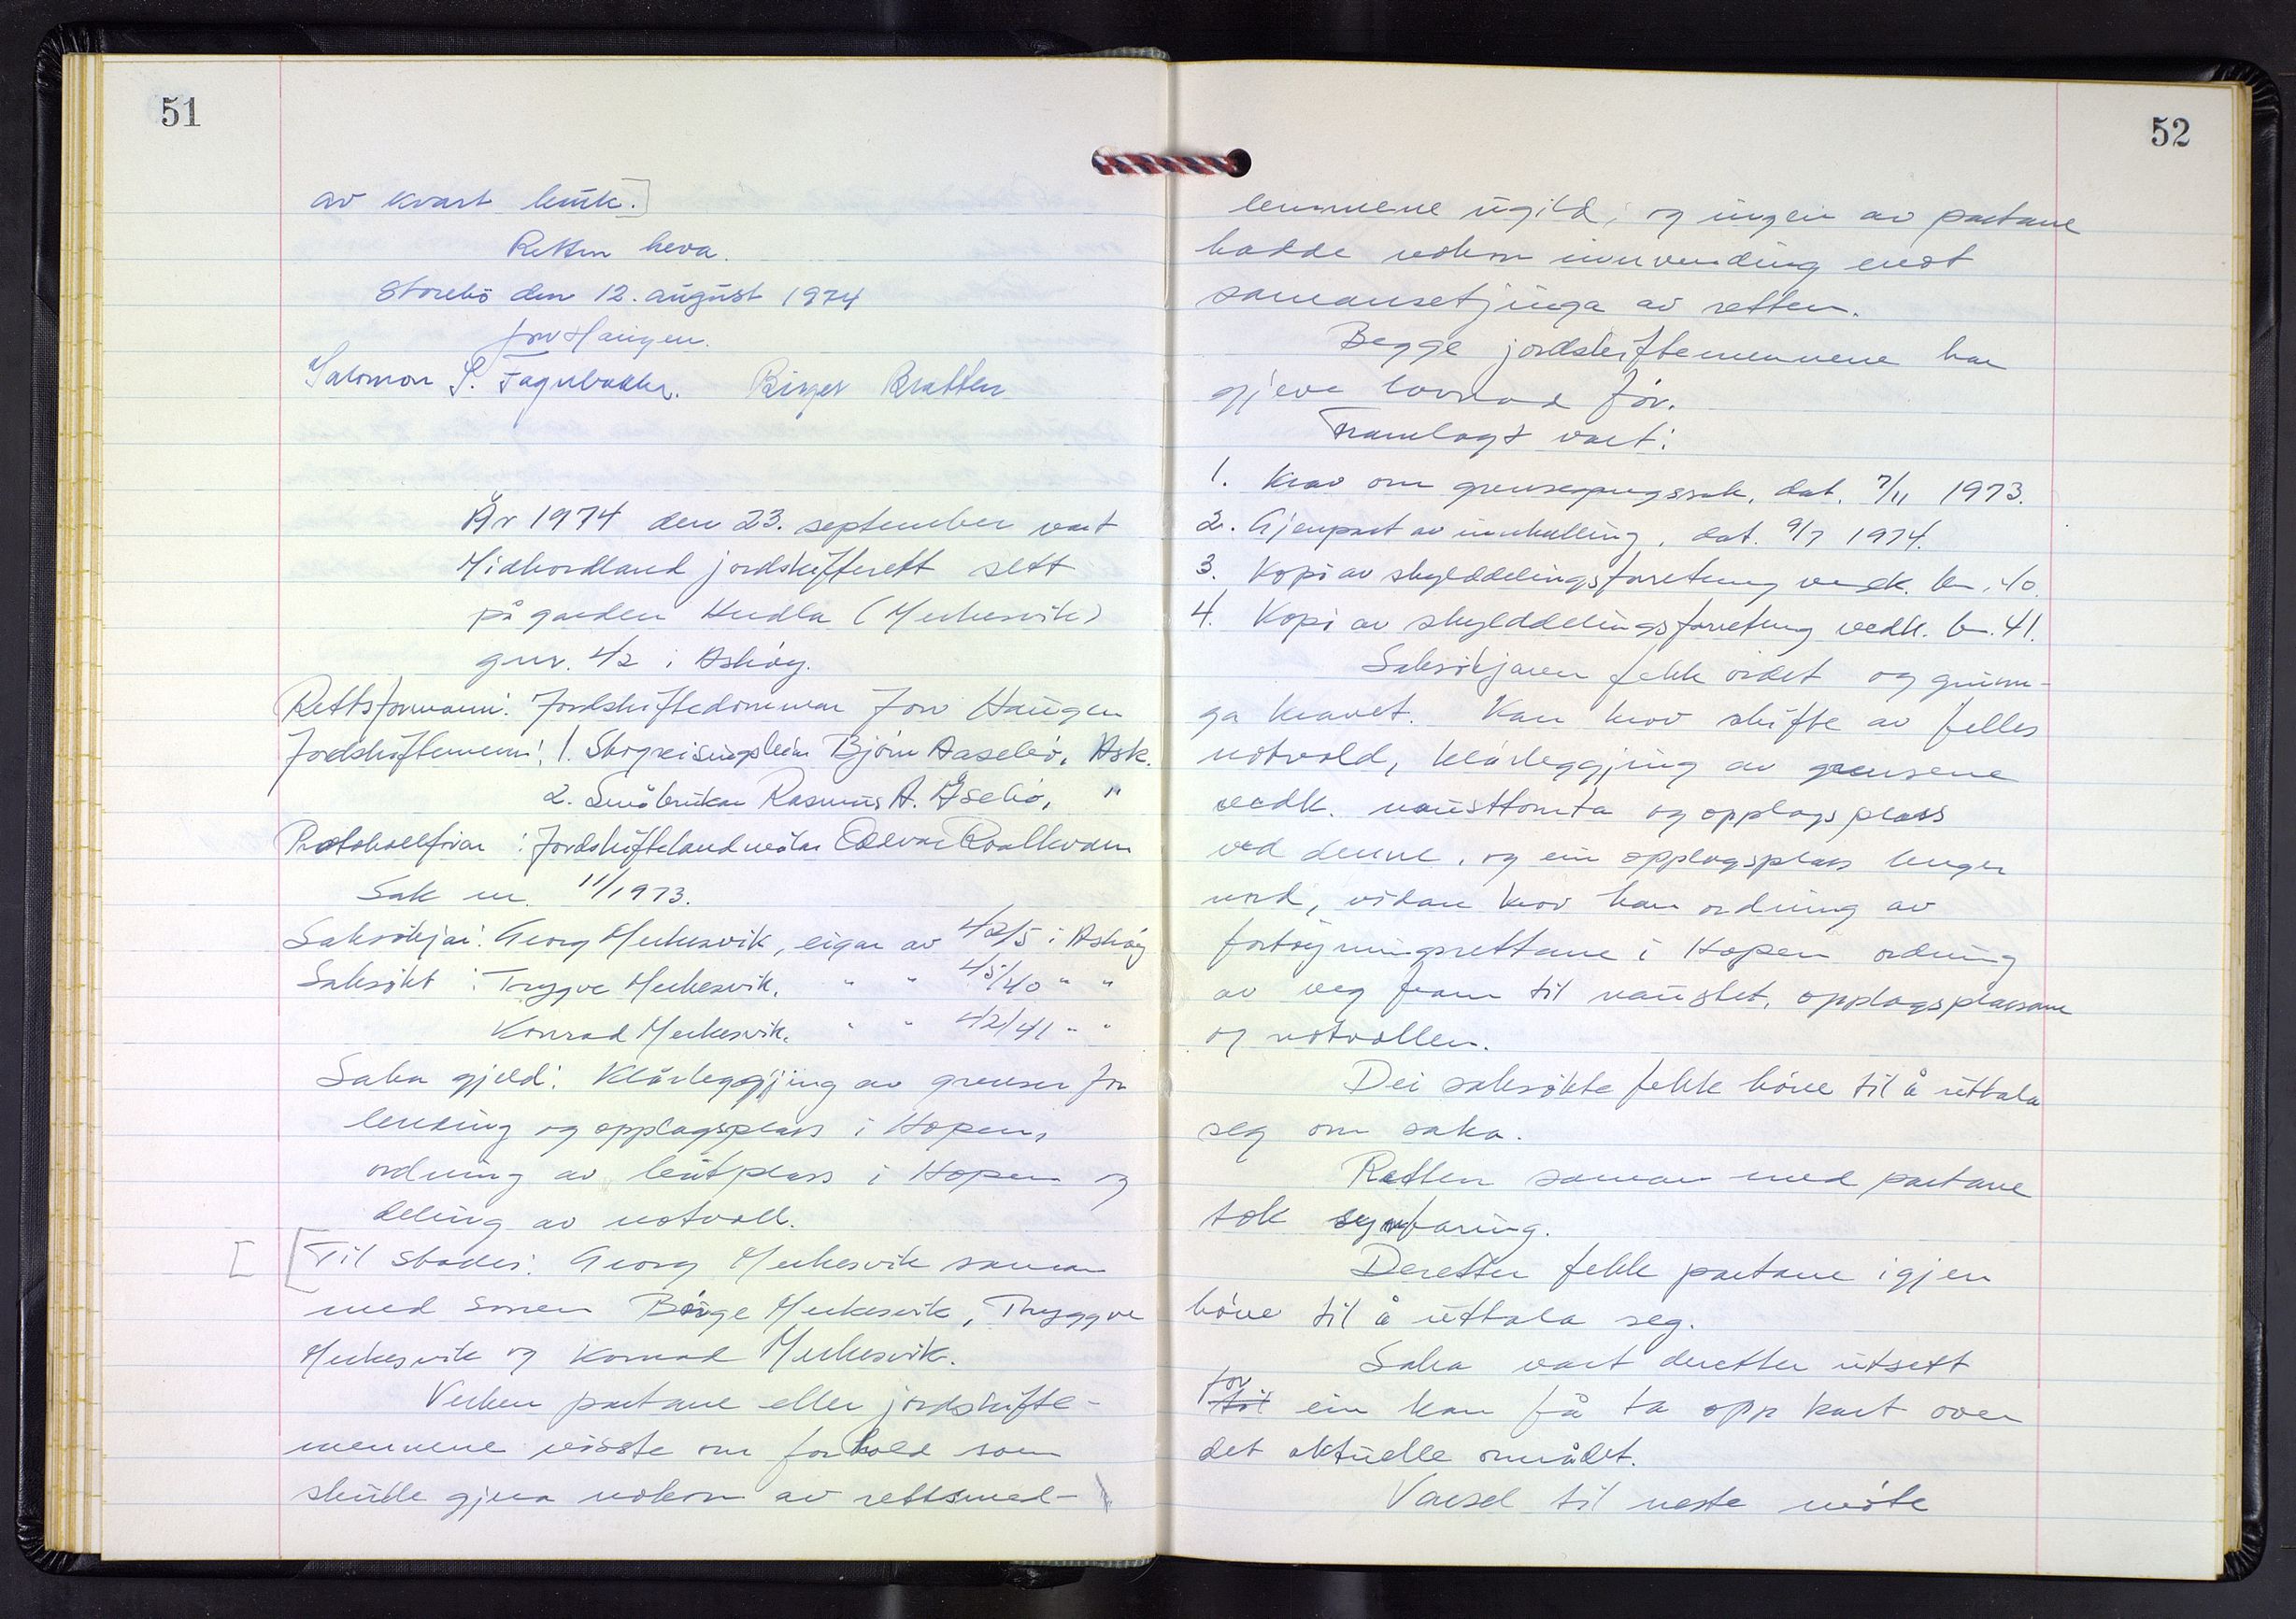 51
av kvart bruk.]
Retten heva.
Storebø den 12. august 1974
Jon Haugen.
Salomon S. Fagerbakke. Birger Bratten
År 1974 den 23. september vart
Midhordland jordskifterett sett
på garden Hudla (Merkesvik)
gnr. 42 i Askøy.
Rettsformann: Jordskiftedommar Jon Haugen
Jordskiftemenn: 1. Skogreisingsleiar Bjørn Aasebø, Ask.
2. Småbrukar Rasmus A. Åsebø, "
Protokollførar: Jordskiftelandmålar Oddvar Roalkvam
Sak nr. 11/1973.
Saksøkjar: Georg Merkesvik, eigar av 42/5 i Askøy
Saksøkt : Trygve Merkesvik, " " 45/40 " "
Konrad Merkesvik, " " 42/41 " "
Saka gjeld: Klårleggjing av grenser for
lending og opplagsplass i Hopen,
ordning av båtplass i Hopen og
deling av notvoll.
[ [Til stades: Georg Merkesvik saman
med sonen Børge Merkesvik, Tryggve
Merkesvik og Konrad Merkesvik.
Verken partane eller jordskifte-
mennene visste om forhold som
skulle gjera nokon av rettsmed-
52
lemmene ugild, og ingen av partane
hadde nokon innvending mot
samansetjinga av retten.
Begge jordskiftemennene har
gjeve lovnad før.
Framlagt vart:
1. Krav om grensegangssak, dat. 7/11 1973.
2. Gjenpart av innkalling, dat. 9/7 1974.
3. Kopi av skylddelingsforretning vedk. bn. 40.
4. Kopi av skylddelingsforretning vedk. bn. 41.
Saksøkjaren fekk ordet og grunn-
ga kravet. Han krov skifte av felles
notvold, klårleggjing av grensene
vedk. nausttomta og opplagsplass
ved denne, og ein opplagsplass lenger
nord, vidare krov han ordning av
fortøyningsrettane i Hopen ordning
av veg fram til naustet, opplagsplassane
og notvollen.
Dei saksøkte fekk høve til å uttala
seg om saka.
Retten saman med partane
tok synfaring.
Deretter fekk partane igjen
høve til å uttala seg.
Saka vart deretter utsett
for
til ein kan få ta opp kart over
det aktuelle området.
Varsel til neste møte